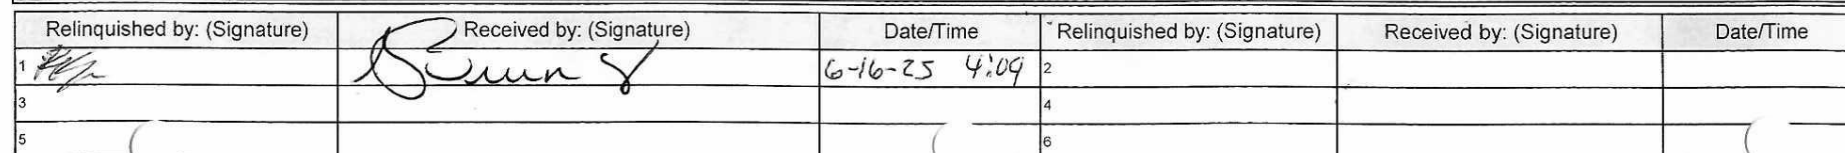 Relinquished by: (Signature) Received by: (Signature) Date/Time Relinquished by: (Signature) Received by: (Signature) Date/Time
1 6-16-25 4:09 2
3 4
5 6